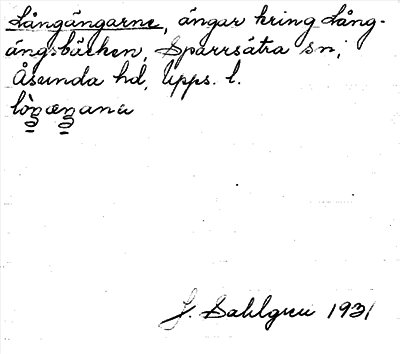 Långängarne, ängar kring Lång-
ängsbäcken, Sparrsätra sn,
Åsunda hd, Upps. l.
J. Sahlgren 1931